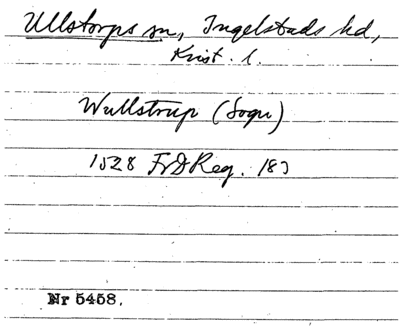 Ullstorps sn, Ingelstads hd,
Krist. l.
Wullstrup (Sogn)
1528 FrDReg. 183
Nr 5458.